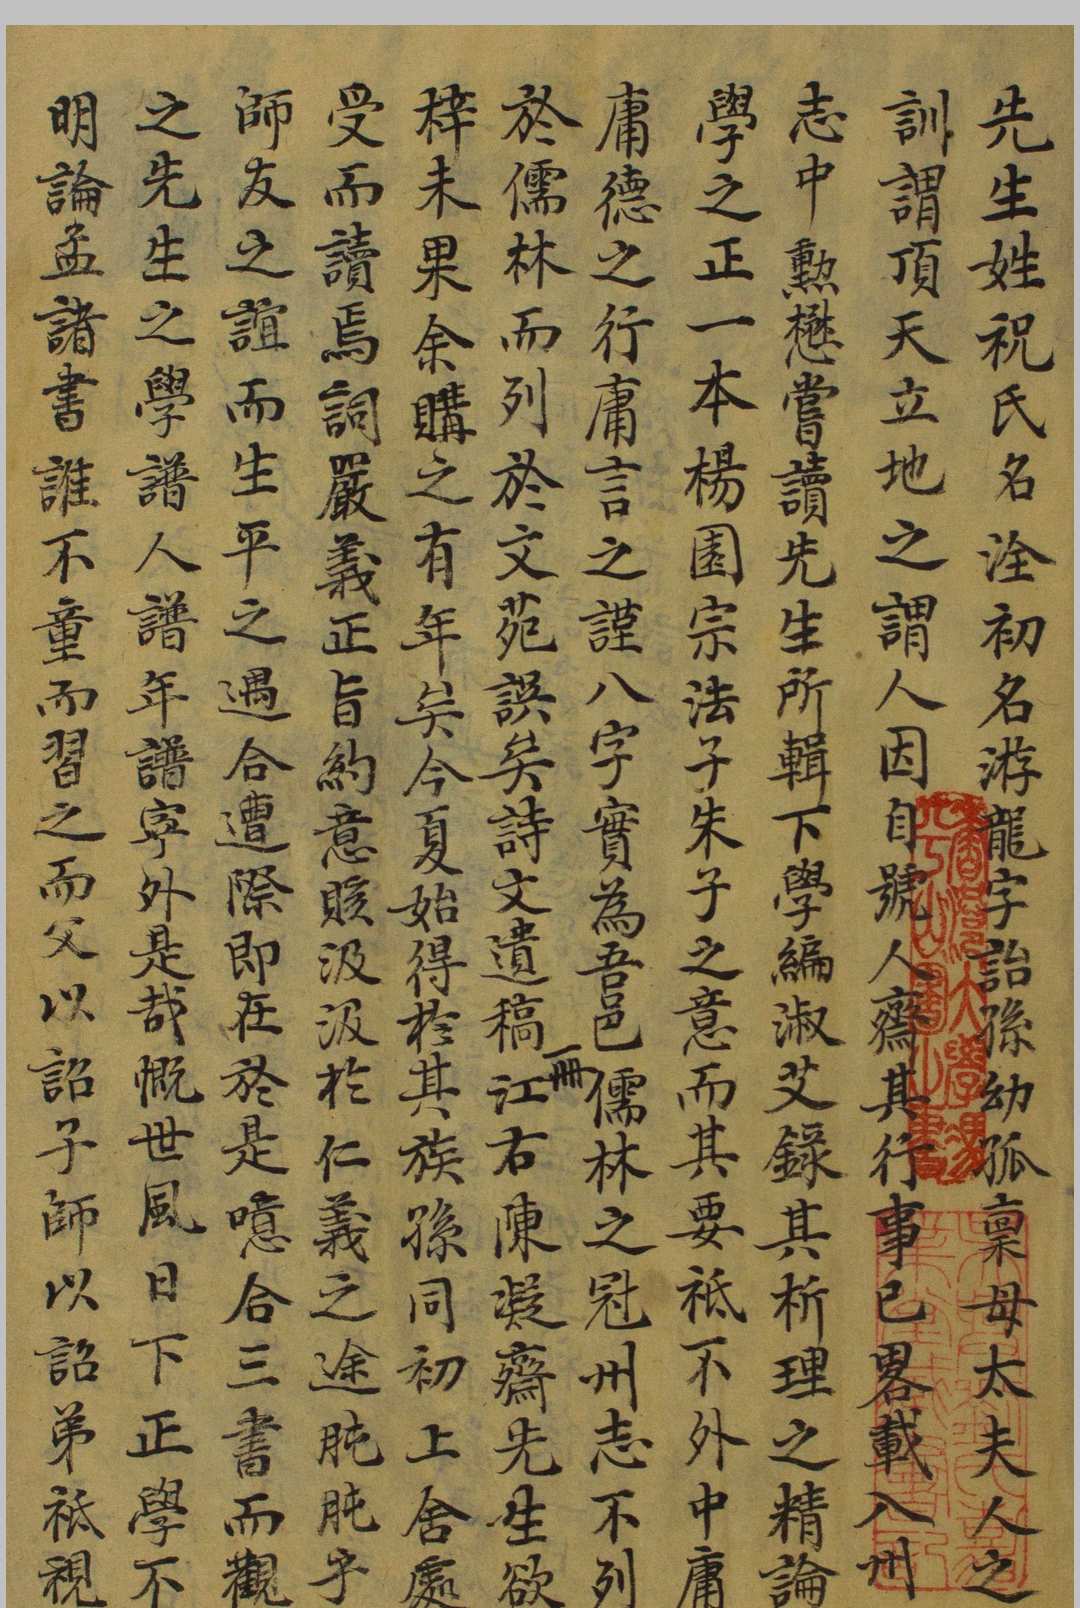 先生姓祝氏名洤初名游龍字詒孫幼孤稟母太夫人之
訓謂頂天立地之謂人因自號人齋其行事已畧載入州
志中勳懋嘗讀先生所輯下學編淑艾錄其析理之精論
學之正一本楊園宗法子朱子之意而其要祗不外中庸
庸德之行庸言之謹八字實為吾邑儒林之冠州志不列
於儒林而列於文苑誤矣詩文遺稿一冊江右陳凝齋先生欲
梓未果余購之有年矣今夏始得於其族孫同初上舍處
受而讀焉詞嚴義正旨約意賅汲汲於仁義之途肫肫乎
師友之誼而生平之遇合遭際即在於是噫合三書而觀
之先生之學譜人譜年譜寧外是哉慨世風日下正學不
明論孟諸書誰不童而習之而父以詔子師以詔弟祗視